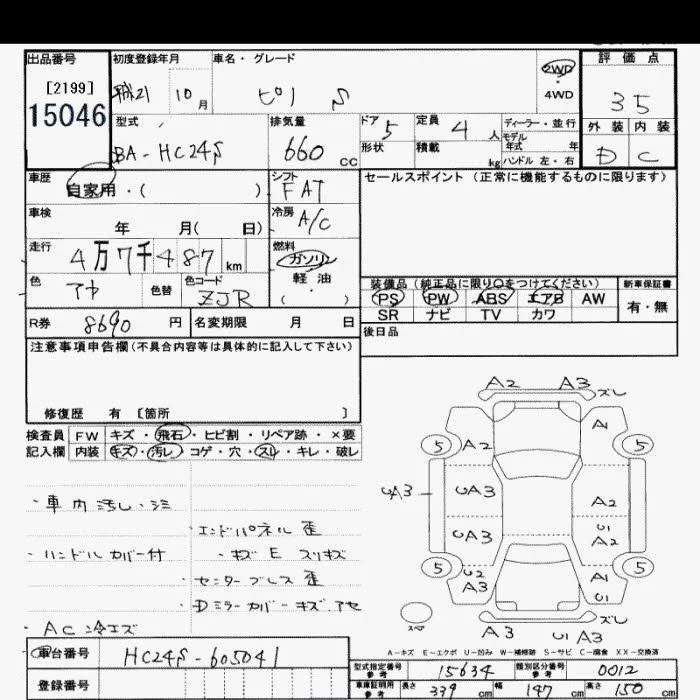 出品番号 初度登録年月 車名・グレード 2WD 評価点
[2199] 平成21 10月 ピノ S 4WD 35
15046
型式 排気量 ドア 定員 ディーラー・並行 外装 内装
BA-HC24S 660cc 5 4人 モデル D C
形状 積載 kg 年式 年 ハンドル 左・右
車歴 自家用・( ) シフト FAT セールスポイント(正常に機能するものに限ります)
車検 年 月( 日) 冷房 A/C
走行 4万7千487km 燃料 ガソリン 軽油 ( )
色 アオ 色替 色コード ZJR
装備品(純正品に限り○をつけてください) 新車保証書
PS PW ABS エアB AW 有・無
SR ナビ TV カワ
R券 8690円 名変期限 月 日 後日品
注意事項申告欄(不具合内容等は具体的に記入して下さい)
修復歴 有 [箇所 ]
検査員 FW キズ・飛石・ヒビ割・リペア跡・×要
記入欄 内装 キズ・汚レ・コゲ・穴・スレ・キレ・破レ
・車内汚レ・シミ
・エンドパネル歪
・ハンドルカバー付 ・キズ E スリキズ
・センタープレス歪
・Dミラーカバーキズ、アセ
・AC冷エズ
A2 A3 ズレ
A1
5 5
A2
UA3 UA3 A2
UA3 U1 A2
5 5
U2 A3 A1 U1
スペア A3 U1 A3 ズレ
A-キズ E-エクボ U-凹み W-補修跡 S-サビ C-腐食 XX-交換済
車台番号 HC24S-605041
登録番号
型式指定番号 参考 15634 類別区分番号 参考 0012
車庫証明用 参考 長さ 339cm 幅 147cm 高さ 150cm